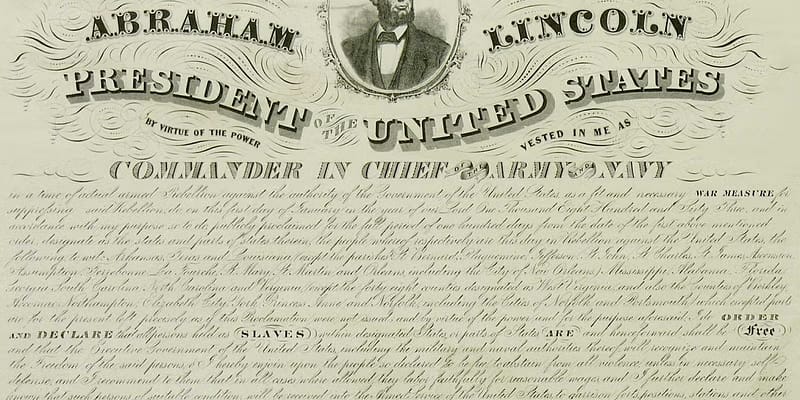 ABRAHAM LINCOLN
PRESIDENT OF THE UNITED STATES
BY VIRTUE OF THE POWER VESTED IN ME AS
COMMANDER IN CHIEF OF THE ARMY AND NAVY
in a time of actual armed Rebellion against the authority of the Government of the United States as a fit and necessary WAR MEASURE for
suppressing said Rebellion, do on this first day of January in the year of our Lord One Thousand Eight Hundred and Sixty Three, and in
accordance with my purpose so to do publicly proclaimed for the full period of one hundred days from the date of the first above mentioned
order, designate as the states and parts of States therein, the people whereof respectively are this day in Rebellion against the United States, the
following to wit: Arkansas, Texas and Louisiana, except the parishes St. Bernard, Plaquemine, Jefferson, St. John, St. Charles, St. James, Ascension,
Assumption, Terrebonne, La Fourche, St. Mary, St. Martin and Orleans, including the City of New Orleans) Mississippi, Alabama, Florida,
Georgia, South Carolina, North Carolina and Virginia, (except the forty eight counties designated as West Virginia, and also the Counties of Berkley,
Accomac, Northampton, Elizabeth City, York, Princess Anne and Norfolk, including the Cities of Norfolk and Portsmouth, which excepted parts
are for the present left precisely as if this Proclamation were not issued. and by virtue of the power and for the purpose aforesaid, I do ORDER
AND DECLARE that all persons held as SLAVES within designated States or parts of States ARE and henceforward shall be Free
and that the Executive Government of the United States, including the military and naval authorities thereof will recognize and maintain
the Freedom of the said persons, & I hereby enjoin upon the people so declared to be free to abstain from all violence, unless in necessary self
defense, and I recommend to them that in all cases where allowed, they labor faithfully for reasonable wages, and I further declare and make
known that such persons of suitable condition, will be received into the Armed Service of the United States to garrison forts, positions, stations and other